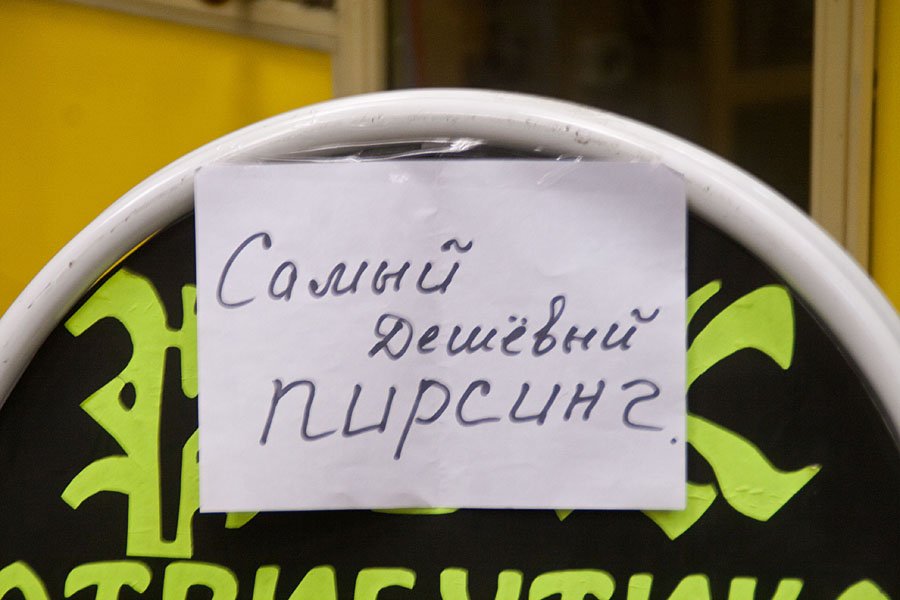 Самый
Дешёвый
пирсинг.